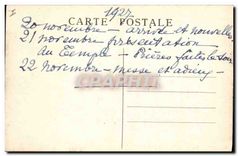 1927
CARTE POSTALE
20 novembre — arrivée et nouvelles
21 novembre présentation
au Temple — Prières faites le soir
22 novembre — messe et adieu
CARTE POSTALE